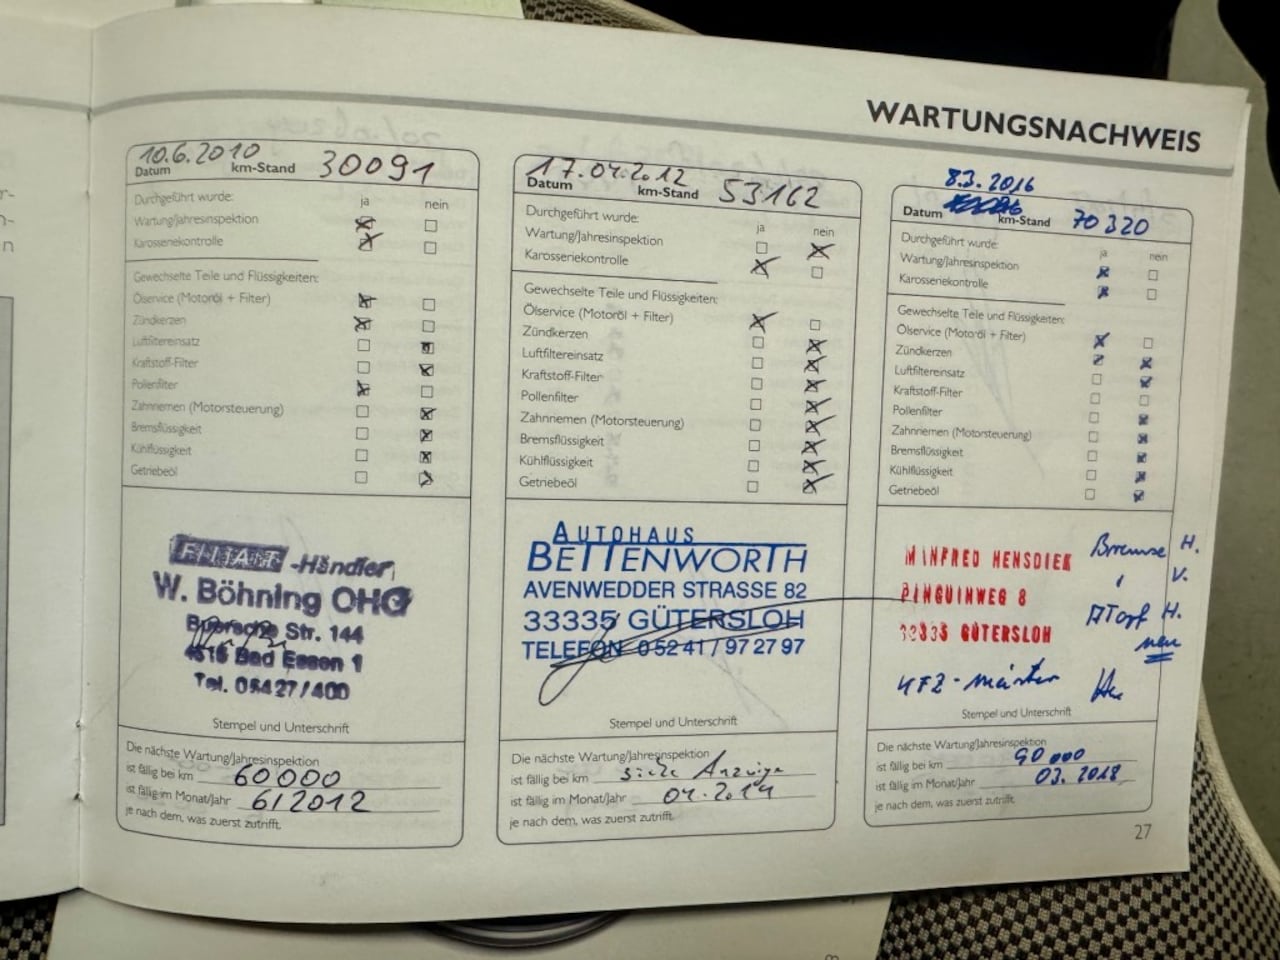 WARTUNGSNACHWEIS
10.6.2010 30091
Datum km-Stand
Durchgeführt wurde: ja nein
Wartung/Jahresinspektion
Karosseriekontrolle
Gewechselte Teile und Flüssigkeiten:
Ölservice (Motoröl + Filter)
Zündkerzen
Luftfiltereinsatz
Kraftstoff-Filter
Pollenfilter
Zahnriemen (Motorsteuerung)
Bremsflüssigkeit
Kühlflüssigkeit
Getriebeöl
-Händler
W. Böhning OHG
Str. 144
Bad Essen 1
Tel. 05427/400
Stempel und Unterschrift
Die nächste Wartung/Jahresinspektion
ist fällig bei km 60000
ist fällig im Monat/Jahr 6/2012
je nach dem, was zuerst zutrifft.
17.04.2012 53162
Datum km-Stand
Durchgeführt wurde: ja nein
Wartung/Jahresinspektion
Karosseriekontrolle
Gewechselte Teile und Flüssigkeiten:
Ölservice (Motoröl + Filter)
Zündkerzen
Luftfiltereinsatz
Kraftstoff-Filter
Pollenfilter
Zahnriemen (Motorsteuerung)
Bremsflüssigkeit
Kühlflüssigkeit
Getriebeöl
AUTOHAUS
BETTENWORTH
AVENWEDDER STRASSE 82
33335 GÜTERSLOH
TELEFON 05241/972797
Stempel und Unterschrift
Die nächste Wartung/Jahresinspektion
ist fällig bei km siehe Anzeige
ist fällig im Monat/Jahr 04.2014
je nach dem, was zuerst zutrifft.
8.3.2016
Datum km-Stand 70320
Durchgeführt wurde: ja nein
Wartung/Jahresinspektion
Karosseriekontrolle
Gewechselte Teile und Flüssigkeiten:
Ölservice (Motoröl + Filter)
Zündkerzen
Luftfiltereinsatz
Kraftstoff-Filter
Pollenfilter
Zahnriemen (Motorsteuerung)
Bremsflüssigkeit
Kühlflüssigkeit
Getriebeöl
MINFRED HENSDIEK Bremse H.
PINGUINWEG 8 V.
33335 GÜTERSLOH ATopf H.
neu
KFZ-meister
Stempel und Unterschrift
Die nächste Wartung/Jahresinspektion
ist fällig bei km 90000
ist fällig im Monat/Jahr 03.2018
je nach dem, was zuerst zutrifft.
27